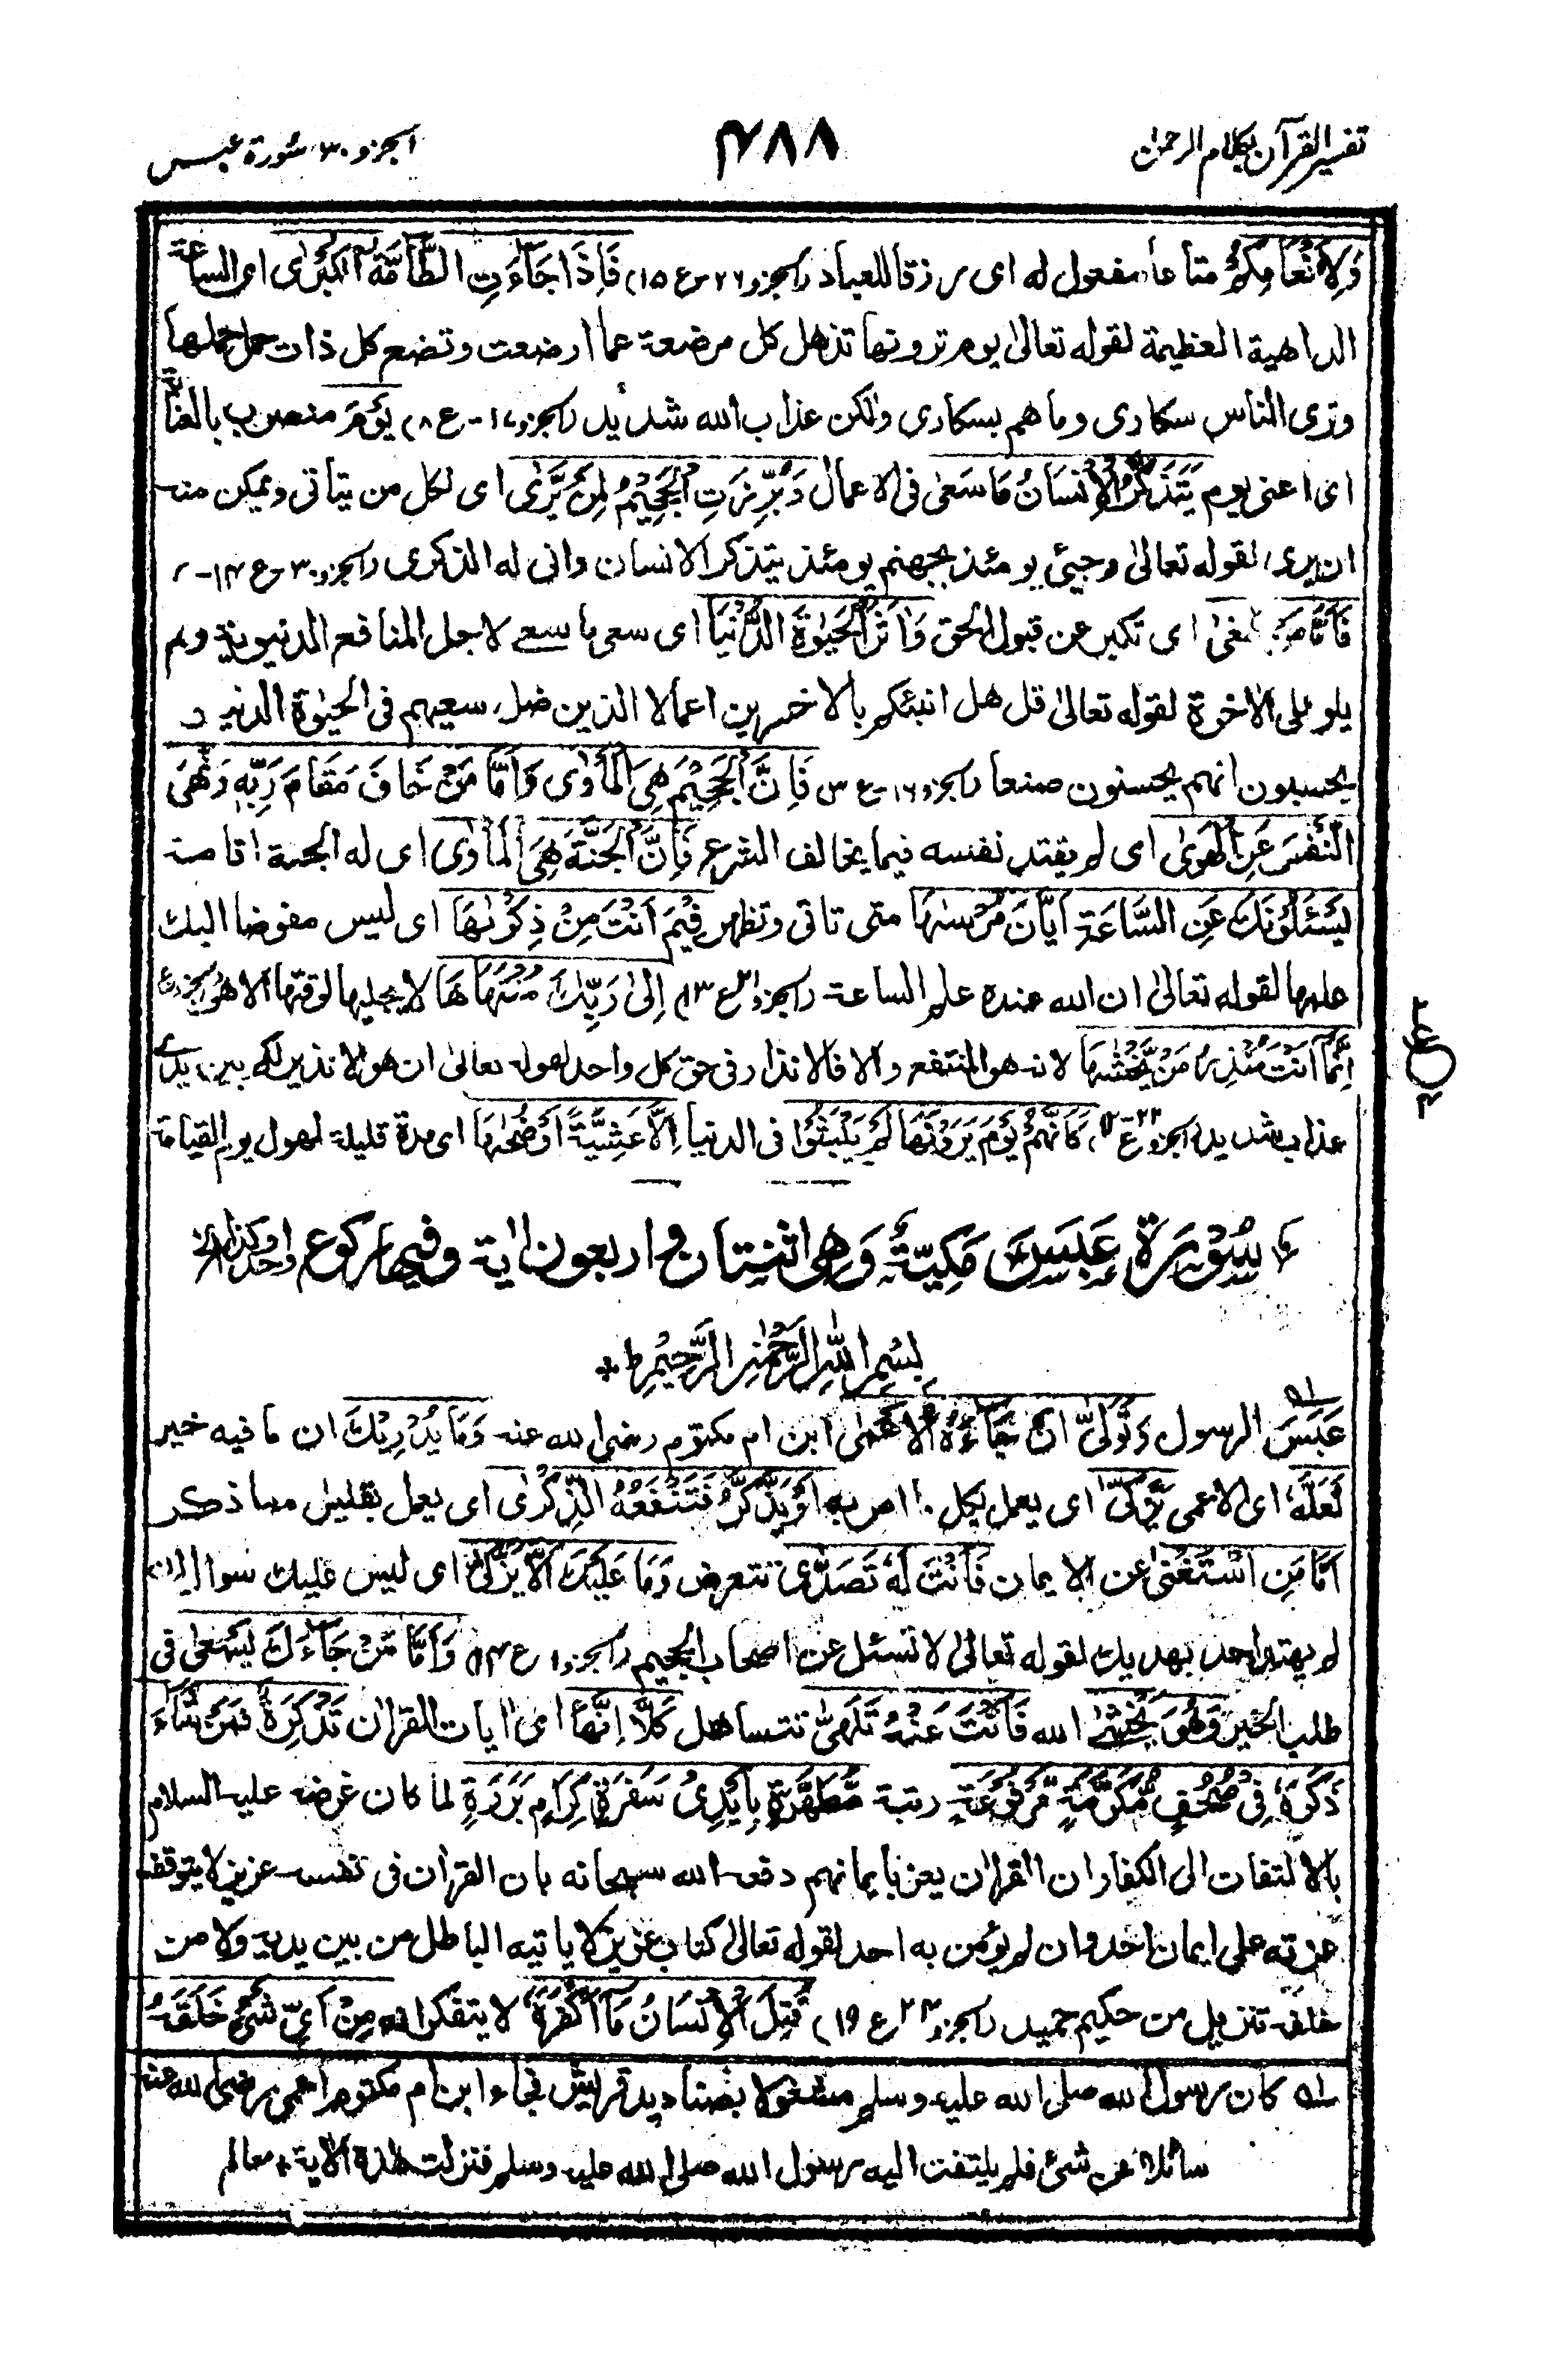 تفسير القرآن بكلام الرحمن
٤٨٨
الجزو ٣٠ سورة عبس
وَلِاَنْعَامِكُمْ متاعا مفعول له اى رزقا للعباد (الجزو ٢٦-ع ١٥) فَاِذَا جَآءَتِ الطَّآمَّةُ الْكُبْرٰى اى الساعة
الداهية العظيمة لقوله تعالىٰ يوم ترونها تذهل كل مرضعة عما ارضعت وتضع كل ذات حمل حملها
وترى الناس سكارى وما هم بسكارى ولكن عذاب الله شديد (الجزو ١٧-ع ٨) يَوْمَ منصوب بالفتحة
اى اعنى يوم يَتَذَكَّرُ الْاِنْسَانُ مَا سَعٰى فى الاعمال وَبُرِّزَتِ الْجَحِيْمُ لِمَنْ يَّرٰى اى لكل من يتأتى ويمكن منه
ان يرى لقوله تعالىٰ وجيئ يومئذ بجهنم يومئذ يتذكر الانسان وانى له الذكرى (الجزو ٣٠-ع ١٤)
فَاَمَّا مَنْ طَغٰى اى تكبر عن قبول الحق وَاٰثَرَ الْحَيٰوةَ الدُّنْيَا اى سعى ما سعى لاجل المنافع الدنيوية ولم
يلو على الاٰخرة لقوله تعالىٰ قل هل انبئكم بالاخسرين اعمالا الذين ضل سعيهم فى الحيٰوة الدنيا و
يحسبون انهم يحسنون صنعا (الجزو ١٦-ع ٣) فَاِنَّ الْجَحِيْمَ هِىَ الْمَأْوٰى وَاَمَّا مَنْ خَافَ مَقَامَ رَبِّهٖ وَنَهَى
النَّفْسَ عَنِ الْهَوٰى اى لم يقتد نفسه فيما يخالف الشرع فَاِنَّ الْجَنَّةَ هِىَ الْمَأْوٰى اى له الجنة اقامة
يَسْئَلُوْنَكَ عَنِ السَّاعَةِ اَيَّانَ مُرْسٰهَا متى تاتى وتظهر فِيْمَ اَنْتَ مِنْ ذِكْرٰىهَا اى ليس مفوضا اليك
علمها لقوله تعالىٰ ان الله عنده علم الساعة (الجزو ٢١ ع ١٣) اِلىٰ رَبِّكَ مُنْتَهٰهَا لا يجليها لوقتها الا هو
اِنَّمَا اَنْتَ مُنْذِرُ مَنْ يَّخْشٰهَا لانه هو المنتفع والا فالانذار فى حق كل واحد لقوله تعالىٰ ان هو الا نذير لكم بين يدى
عذاب شديد (الجزو ٢٢-ع ١٢) كَاَنَّهُمْ يَوْمَ يَرَوْنَهَا لَمْ يَلْبَثُوْا فى الدنيا اِلَّا عَشِيَّةً اَوْ ضُحٰهَا اى مدة قليلة لهول يوم القيامة
سُوْرَةُ عَبَسَ مَكِيَّةٌ وَهِىَ اثنتان و اربعون اٰية وفيها ركوع واحد
بِسْمِ اللّٰهِ الرَّحْمٰنِ الرَّحِيْمِ
عَبَسَ الرسول وَتَوَلّٰى اَنْ جَآءَهُ الْاَعْمٰى ابن ام مكتوم رضى الله عنه وَمَا يُدْرِيْكَ ان ما فيه خير
لَعَلَّهٗ اى الاعمى يَزَّكّٰى اى يعمل بكل ما امر به اَوْ يَذَّكَّرُ فَتَنْفَعَهُ الذِّكْرٰى اى يعمل بقليل مما ذكر
اَمَّا مَنِ اسْتَغْنٰى عن الايمان فَاَنْتَ لَهٗ تَصَدّٰى تتعرض وَمَا عَلَيْكَ اَلَّا يَزَّكّٰى اى ليس عليك سوال ان
لم يهتد احد بهديك لقوله تعالىٰ لا تسئل عن اصحاب الجحيم (الجزو ١ ع ١٤) وَاَمَّا مَنْ جَآءَكَ يَسْعٰى فى
طلب الخير وَهُوَ يَخْشٰى الله فَاَنْتَ عَنْهُ تَلَهّٰى تتساهل كَلَّا اِنَّهَا اى اٰيات القراٰن تَذْكِرَةٌ فَمَنْ شَآءَ
ذَكَرَهٗ فِىْ صُحُفٍ مُّكَرَّمَةٍ مَّرْفُوْعَةٍ رتبة مُّطَهَّرَةٍ بِاَيْدِىْ سَفَرَةٍ كِرَامٍ بَرَرَةٍ لما كان غرضه عليه السلام
بالالتفات الى الكفار ان القراٰن يعز بايمانهم دفعه الله سبحانه بان القراٰن فى نفسه عزيز لا يتوقف
عزته على ايمان احد وان لم يؤمن به احد لقوله تعالىٰ كتاب عزيز لا ياتيه الباطل من بين يديه ولا من
خلفه تنزيل من حكيم حميد (الجزو ٢٤ ع ١٩) قُتِلَ الْاِنْسَانُ مَآ اَكْفَرَهٗ لا يتفكر انه مِنْ اَىِّ شَىْءٍ خَلَقَهٗ
لہ كان رسول الله صلى الله عليه وسلم مشغولا بصناديد قريش فجاء ابن ام مكتوم اعمى رضى الله عنه
سائلا عن شئ فلم يلتفت اليه رسول الله صلى الله عليه وسلم فنزلت هذه الاٰية ۔ معالم